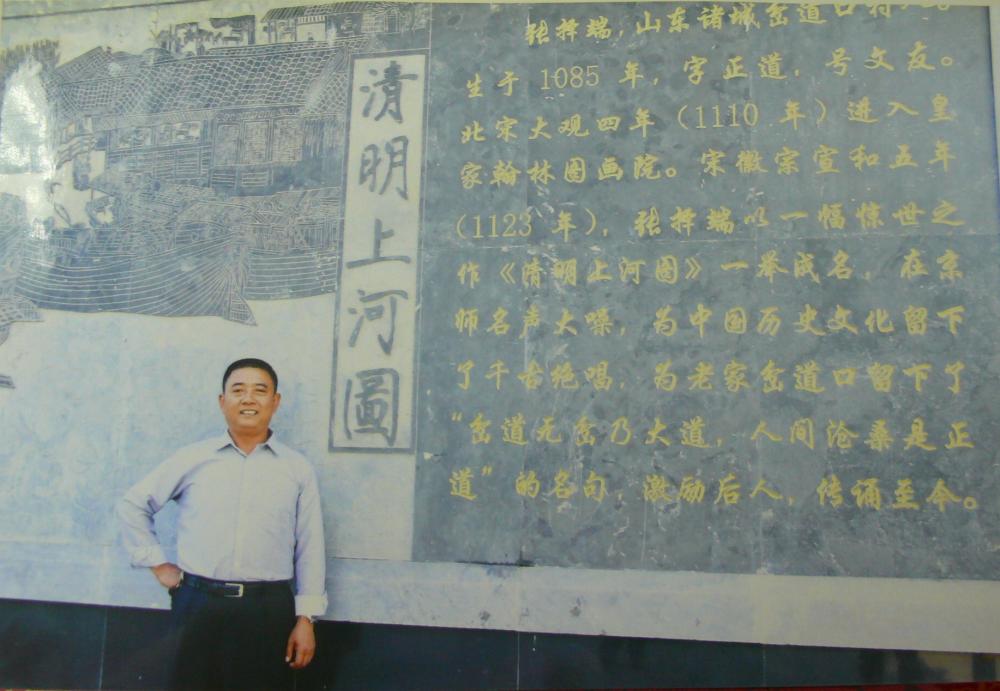 清明上河圖
张择端，山东诸城岔道口村人。
生于 1085 年，字正道，号文友。
北宋大观四年（1110 年）进入皇
家翰林图画院。宋徽宗宣和五年
（1123 年），张择端以一幅惊世之
作《清明上河图》一举成名，在京
师名声大噪，为中国历史文化留下
了千古绝唱，为老家岔道口留下了
“岔道无岔乃大道，人间沧桑是正
道”的名句，激励后人，传诵至今。